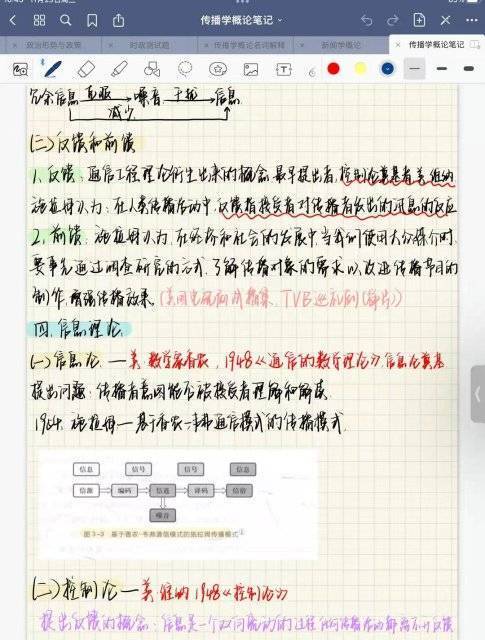 传播学概论笔记
政治形势与政策 时政测试题 传播学概论名词解释 新闻学概论 传播学概论笔记
冗余信息 克服 噪音 干扰 信息
减少
(三)反馈和前馈
1、反馈:通信工程理论衍生出来的概念,最早提出者,控制论奠基者美维纳
施拉姆认为:在人类传播活动中,反馈指接受者对传播者发出的讯息的反应
2、前馈:施拉姆认为,在经济和社会的发展中,当我们使用大众媒介时,
要事先通过调查研究的方式,了解传播对象的需求以改进传播节目的
制作,增强传播效果(美国电视剧试播集、TVB巡礼剧(样片))
四、信息理论
(一)信息论 — 美,数学家香农,1948《通信的数学理论》信息论奠基
提出问题:传播者意图能否被接受者理解和解读
1954,施拉姆—基于香农-韦弗通信模式的传播模式
信息 信号 信号 信息
信源 编码 信道 译码 信宿
噪音
图3-3 基于香农-韦弗通信模式的施拉姆传播模式①
(二)控制论 — 美,维纳 1948《控制论》
提出反馈的概念:信息是一个双向流动的过程